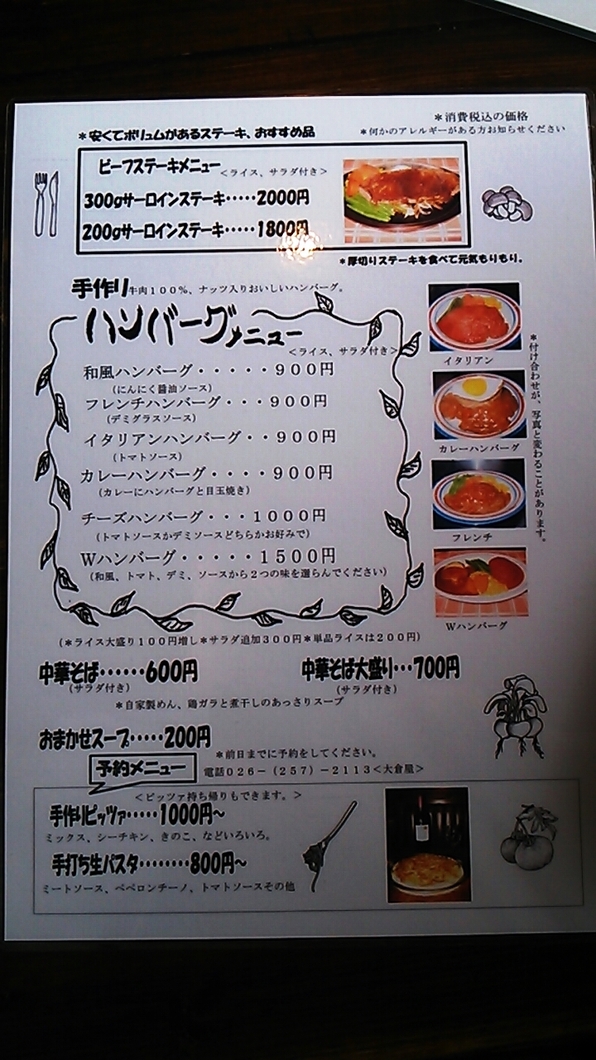 ＊消費税込の価格
＊安くてボリュムがあるステーキ、おすすめ品
＊何かのアレルギーがある方お知らせください
ビーフステーキメニュー
＜ライス、サラダ付き＞
300gサーロインステーキ・・・・・2000円
200gサーロインステーキ・・・・・1800円
＊厚切りステーキを食べて元気もりもり。
手作り牛肉１００％、ナッツ入りおいしいハンバーグ。
ハンバーグメニュー
＜ライス、サラダ付き＞
和風ハンバーグ・・・・・９００円
（にんにく醤油ソース）
フレンチハンバーグ・・・９００円
（デミグラスソース）
イタリアンハンバーグ・・９００円
（トマトソース）
カレーハンバーグ・・・・９００円
（カレーにハンバーグと目玉焼き）
チーズハンバーグ・・・１０００円
（トマトソースかデミソースどちらかお好みで）
Ｗハンバーグ・・・・・１５００円
（和風、トマト、デミ、ソースから２つの味を選らんでください）
イタリアン
カレーハンバーグ
フレンチ
Wハンバーグ
＊付け合わせが、写真と変わることがあります。
（＊ライス大盛り１００円増し＊サラダ追加３００円＊単品ライスは２００円）
中華そば・・・・・・600円
（サラダ付き）
中華そば大盛り・・・700円
（サラダ付き）
＊自家製めん、鶏ガラと煮干しのあっさりスープ
おまかせスープ・・・・・200円
＊前日までに予約をしてください。
予約メニュー
電話０２６－（２５７）－２１１３＜大倉屋＞
＜ピッツァ持ち帰りもできます。＞
手作りピッツァ・・・・・1000円～
ミックス、シーチキン、きのこ、などいろいろ。
手打ち生パスタ・・・・・・・・800円～
ミートソース、ペペロンチーノ、トマトソースその他